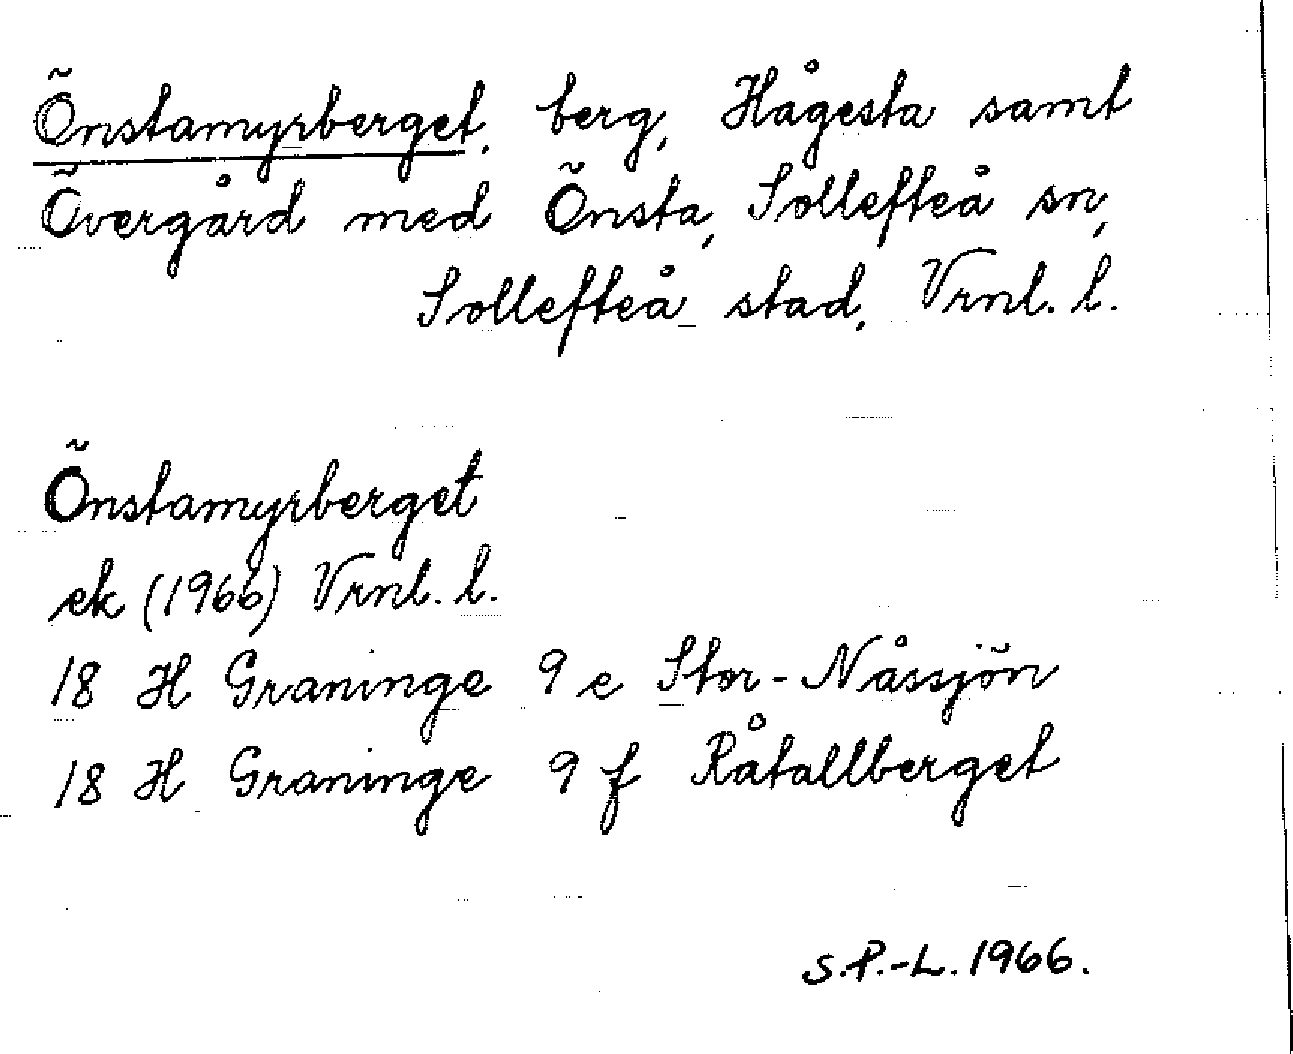 Önstamyrberget, berg, Hågesta samt
Övergård med Önsta, Sollefteå sn,
Sollefteå stad, Vrnl. l.
Önstamyrberget
ek (1966) Vrnl. l.
18 H Graninge 9 e Stor-Nåssjön
18 H Graninge 9 f Råtallberget
S.P.-L. 1966.